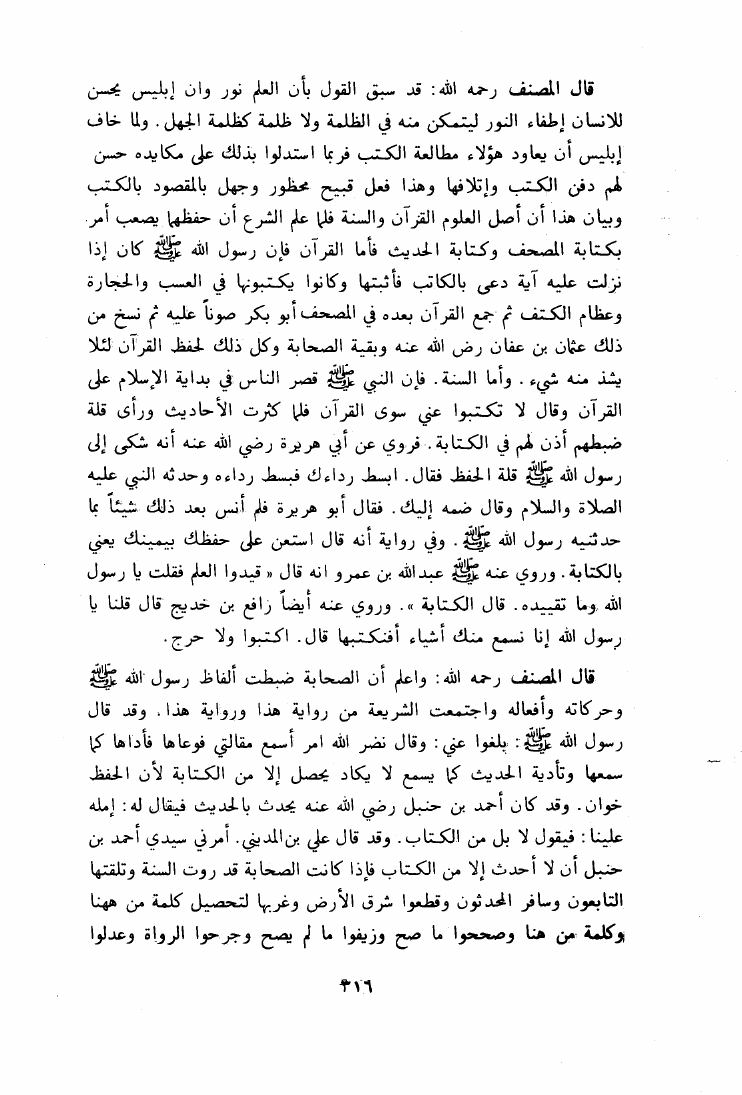 قال المصنف رحمه الله: قد سبق القول بأن العلم نور وان إبليس يحسن
للانسان إطفاء النور ليتمكن منه في الظلمة ولا ظلمة كظلمة الجهل. ولما خاف
إبليس أن يعاود هؤلاء مطالعة الكتب فربما استدلوا بذلك على مكايده حسن
لهم دفن الكتب وإتلافها وهذا فعل قبيح محظور وجهل بالمقصود بالكتب
وبيان هذا أن أصل العلوم القرآن والسنة فلما علم الشرع أن حفظهما يصعب أمر
بكتابة المصحف وكتابة الحديث فأما القرآن فإن رسول الله ﷺ كان إذا
نزلت عليه آية دعى بالكاتب فأثبتها وكانوا يكتبونها في العسب والحجارة
وعظام الكتف ثم جمع القرآن بعده في المصحف أبو بكر صوناً عليه ثم نسخ من
ذلك عثمان بن عفان رض الله عنه وبقية الصحابة وكل ذلك لحفظ القرآن لئلا
يشذ منه شيء. وأما السنة. فإن النبي ﷺ قصر الناس في بداية الإسلام على
القرآن وقال لا تكتبوا عني سوى القرآن فلما كثرت الأحاديث ورأى قلة
ضبطهم أذن لهم في الكتابة. فروي عن أبي هريرة رضي الله عنه أنه شكى إلى
رسول الله ﷺ قلة الحفظ فقال. ابسط رداءك فبسط رداءه وحدثه النبي عليه
الصلاة والسلام وقال ضمه إليك. فقال أبو هريرة فلم أنس بعد ذلك شيئاً بما
حدثنيه رسول الله ﷺ. وفي رواية أنه قال استعن على حفظك بيمينك يعني
بالكتابة. وروي عنه ﷺ عبدالله بن عمرو انه قال « قيدوا العلم فقلت يا رسول
الله وما تقييده. قال الكتابة ». وروي عنه أيضاً رافع بن خديج قال قلنا يا
رسول الله إنا نسمع منك أشياء أفنكتبها قال. اكتبوا ولا حرج.
قال المصنف رحمه الله: واعلم أن الصحابة ضبطت ألفاظ رسول الله ﷺ
وحركاته وأفعاله واجتمعت الشريعة من رواية هذا ورواية هذا. وقد قال
رسول الله ﷺ: بلغوا عني: وقال نضر الله امر أسمع مقالتي فوعاها فأداها كما
سمعها وتأدية الحديث كما يسمع لا يكاد يحصل إلا من الكتابة لأن الحفظ
خوان. وقد كان أحمد بن حنبل رضي الله عنه يحدث بالحديث فيقال له: إمله
علينا: فيقول لا بل من الكتاب. وقد قال علي بن المديني. أمرني سيدي أحمد بن
حنبل أن لا أحدث إلا من الكتاب فإذا كانت الصحابة قد روت السنة وتلقتها
التابعون وسافر المحدثون وقطعوا شرق الأرض وغربها لتحصيل كلمة من ههنا
وكلمة من هنا وصححوا ما صح وزيفوا ما لم يصح وجرحوا الرواة وعدلوا
٣١٦